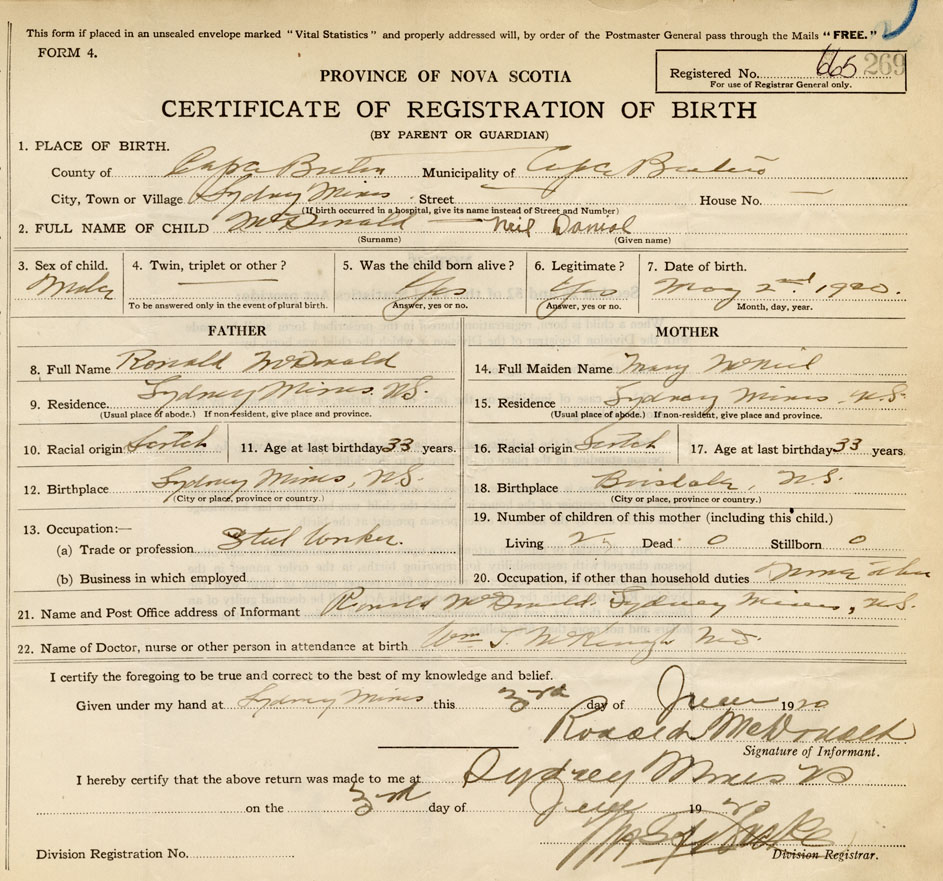 This form if placed in an unsealed envelope marked "Vital Statistics" and properly addressed will, by order of the Postmaster General pass through the Mails "FREE."
FORM 4.
Registered No. 665 269
For use of Registrar General only.
PROVINCE OF NOVA SCOTIA
CERTIFICATE OF REGISTRATION OF BIRTH
(BY PARENT OR GUARDIAN)
1. PLACE OF BIRTH.
County of Cape Breton Municipality of Cape Breton
City, Town or Village Sydney Mines Street House No.
(If birth occurred in a hospital, give its name instead of Street and Number)
2. FULL NAME OF CHILD McDonald — Neil Daniel
(Surname) (Given name)
3. Sex of child. 4. Twin, triplet or other? 5. Was the child born alive? 6. Legitimate? 7. Date of birth.
Male — Yes Yes May 2nd 1920.
To be answered only in the event of plural birth. Answer, yes or no. Answer, yes or no. Month, day, year.
FATHER
8. Full Name Ronald McDonald
9. Residence Sydney Mines, N.S.
(Usual place of abode.) If non-resident, give place and province.
10. Racial origin Scotch 11. Age at last birthday 33 years.
12. Birthplace Sydney Mines, N.S.
(City or place, province or country.)
13. Occupation:—
(a) Trade or profession Steel Worker.
(b) Business in which employed
MOTHER
14. Full Maiden Name Mary McNeil
15. Residence Sydney Mines, N.S.
(Usual place of abode.) If non-resident, give place and province.
16. Racial origin Scotch 17. Age at last birthday 33 years.
18. Birthplace Boisdale, N.S.
(City or place, province or country.)
19. Number of children of this mother (including this child.)
Living 2 Dead 0 Stillborn 0
20. Occupation, if other than household duties
21. Name and Post Office address of Informant Ronald McDonald, Sydney Mines, N.S.
22. Name of Doctor, nurse or other person in attendance at birth Wm J. M.D.
I certify the foregoing to be true and correct to the best of my knowledge and belief.
Given under my hand at Sydney Mines this 3rd day of June 1920
Ronald McDonald
Signature of Informant.
I hereby certify that the above return was made to me at Sydney Mines
on the 3rd day of June 1920
Division Registration No. Division Registrar.